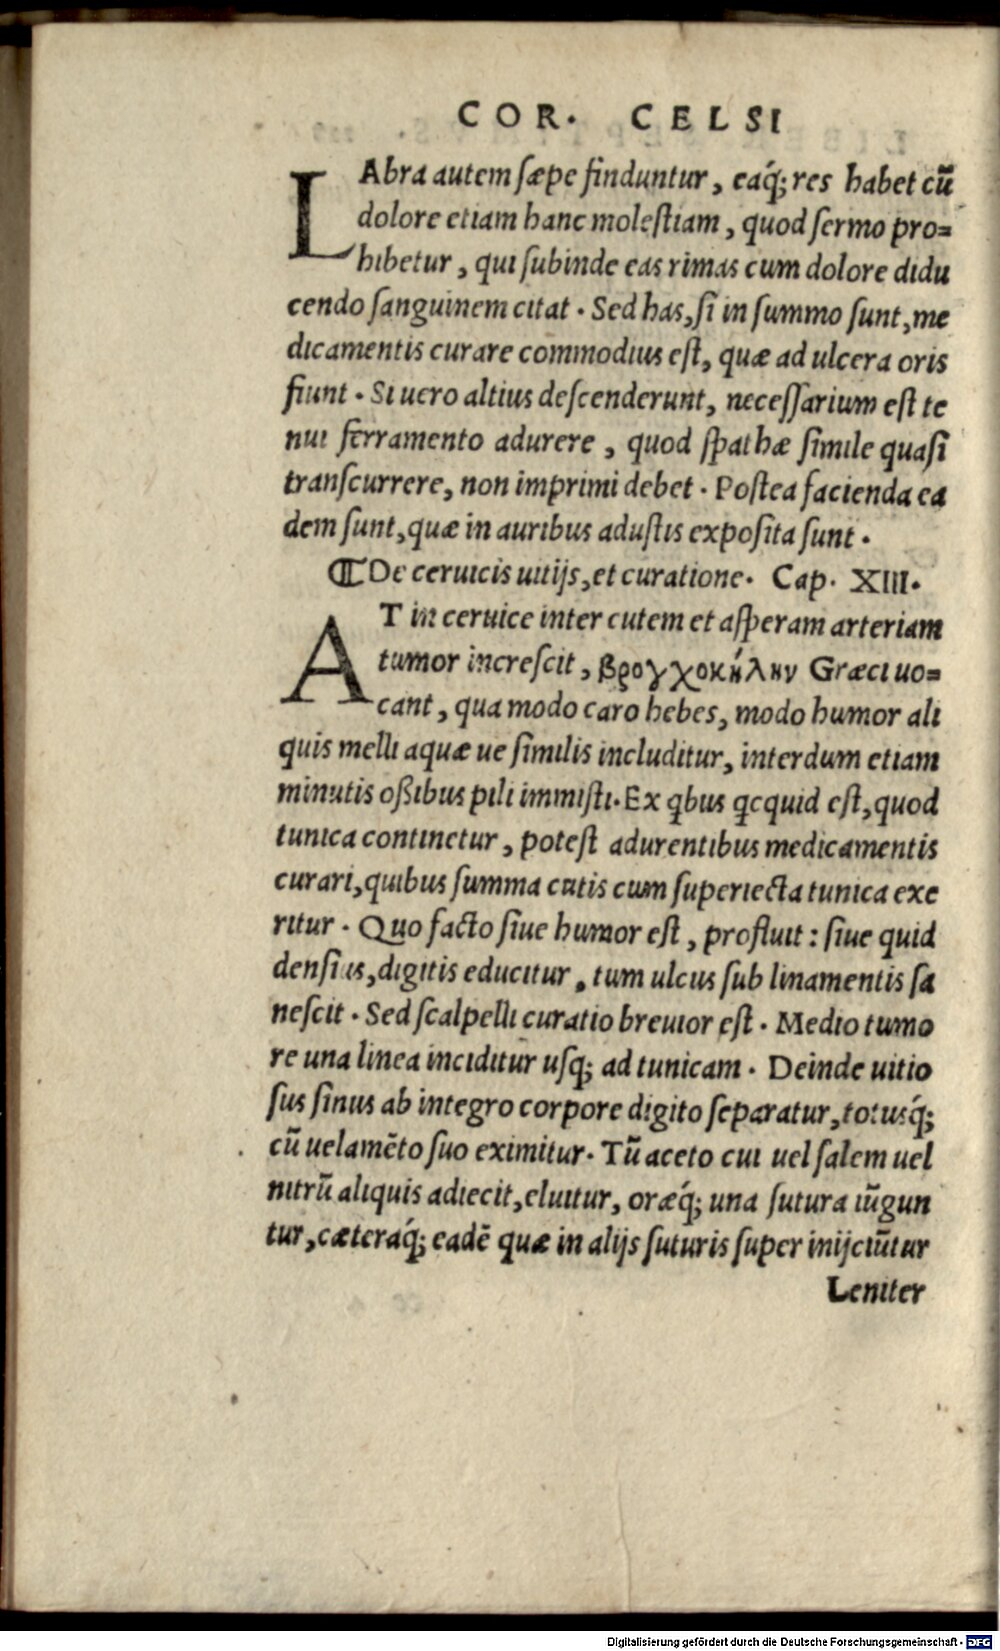 COR. CELSI
LAbra autem sæpe finduntur, eaq́; res habet cū
dolore etiam hanc molestiam, quod sermo pro=
hibetur, qui subinde eas rimas cum dolore didu
cendo sanguinem citat. Sed has, si in summo sunt, me
dicamentis curare commodius est, quæ ad ulcera oris
fiunt. Si uero altius descenderunt, necessarium est te
nui ferramento adurere, quod spathæ simile quasi
transcurrere, non imprimi debet. Postea facienda ea
dem sunt, quæ in auribus adustis exposita sunt.
⸿De ceruicis uitijs, et curatione. Cap. XIII.
AT in ceruice inter cutem et asperam arteriam
tumor increscit, βρογχοκήλην Græci uo=
cant, qua modo caro hebes, modo humor ali
quis melli aquæ ue similis includitur, interdum etiam
minutis oßibus pili immisti. Ex qbus qcquid est, quod
tunica continetur, potest adurentibus medicamentis
curari, quibus summa cutis cum superiecta tunica exe
ritur. Quo facto siue humor est, profluit: siue quid
densius, digitis educitur, tum ulcus sub linamentis sa
nescit. Sed scalpelli curatio breuior est. Medio tumo
re una linea inciditur usq; ad tunicam. Deinde uitio
sus sinus ab integro corpore digito separatur, totusq́;
cū uelamēto suo eximitur. Tū aceto cui uel salem uel
nitrū aliquis adiecit, eluitur, oræq́; una sutura iūgun
tur, cæteraq́; eadē quæ in alijs suturis super inijciūtur
Leniter
Digitalisierung gefördert durch die Deutsche Forschungsgemeinschaft - DFG